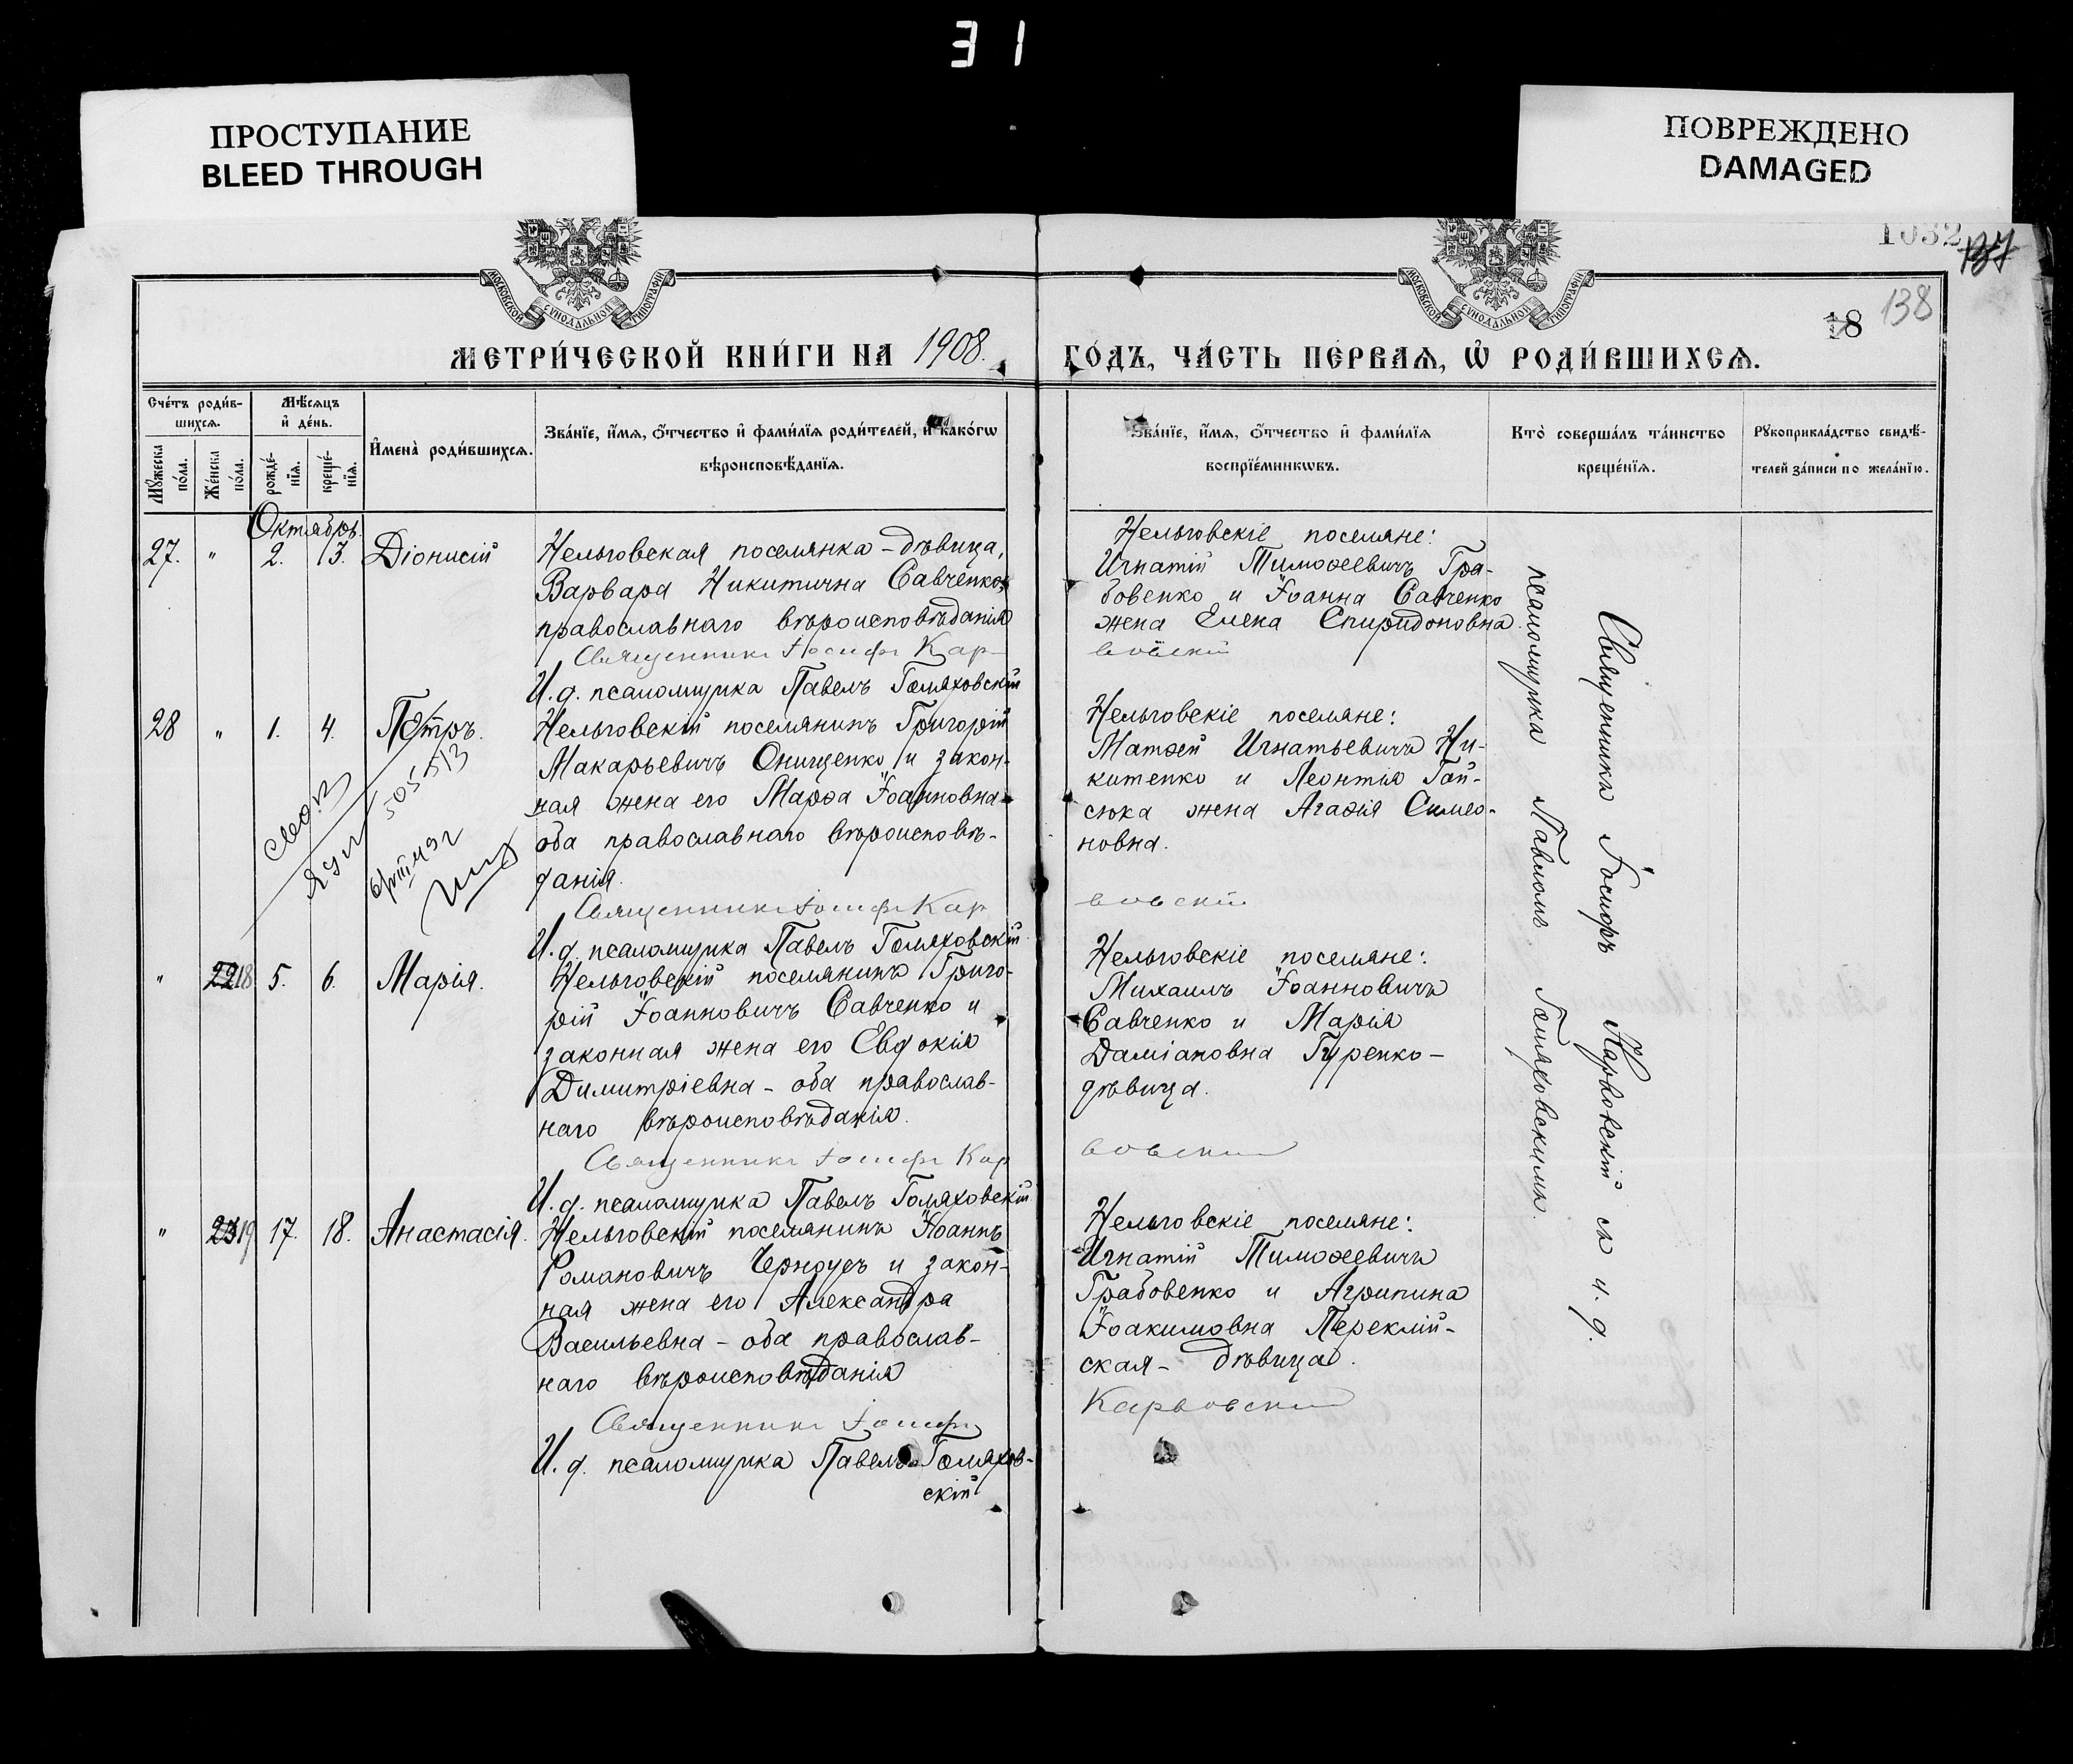 31
ПРОСТУПАНИЕ
BLEED THROUGH
ПОВРЕЖДЕНО
DAMAGED
1032
137
138
18
МОСКОВСКОЙ СѴНОДАЛЬНОЙ ТИПОГРАФІИ
МОСКОВСКОЙ СѴНОДАЛЬНОЙ ТИПОГРАФІИ
МЕТРИ́ЧЕСКОЙ КНИ́ГИ НА 1908.
ГО́ДЪ, ЧА́СТЬ ПЕ́РВАЯ, Ѡ҆ РОДИ́ВШИХСѦ.
Сче́тъ роди́в-
шихсѧ.
Мꙋ́жеска
по́ла.
Же́нска
по́ла.
Мѣ́сѧцъ
и҆ де́нь.
рожде́-
нїѧ.
креще́-
нїѧ.
И҆мена̀ роди́вшихсѧ.
Зва́нїе, и҆́мѧ, ѻ҆́тчество и҆ фами́лїѧ роди́телей, и҆ како́гѡ
вѣроисповѣ́данїѧ.
Зва́нїе, и҆́мѧ, ѻ҆́тчество и҆ фами́лїѧ
воспрїе́мникѡвъ.
Кто̀ соверша́лъ та́инство
креще́нїѧ.
Рꙋкоприкла́дство свидѣ́-
телей за́писи по жела́нїю.
Октябрь.
27. " 2. 13. Діонисій
Нельговская поселянка - дѣвица,
Варвара Никитична Савченко,
православнаго вѣроисповѣданія
Священникъ Іосифъ Кар-
И. д. псаломщика Павелъ Голяховскій
Нельговскіе поселяне:
Игнатій Тимоѳеевичъ Гра-
бовенко и Іоанна Савченко
жена Елена Спиридоновна.
вовскій
28 " 1. 4. Петръ.
505513
Нельговскій поселянинъ Григорій
Макарьевичъ Онищенко и закон-
ная жена его Марѳа Іоанновна-
оба православнаго вѣроисповѣ-
данія.
Священникъ Іосифъ Кар
И. д. псаломщика Павелъ Голяховскій
Нельговскіе поселяне:
Матѳей Игнатьевичъ Ни-
китенко и Леонтія Гай-
сюка жена Агаѳія Симео-
новна.
вовскій
" 22 18 5. 6. Марія.
Нельговскій поселянинъ Григо-
рій Іоанновичъ Савченко и
законная жена его Евдокія
Димитріевна - оба православ-
наго вѣроисповѣданія.
Священникъ Іосифъ Кар
И. д. псаломщика Павелъ Голяховскій
Нельговскіе поселяне:
Михаилъ Іоанновичъ
Савченко и Марія
Даміановна Гуренко -
дѣвица.
вовскій
" 23 19 17. 18. Анастасія.
Нельговскій поселянинъ Іоаннъ
Романовичъ Черноусъ и закон-
ная жена его Александра
Васильевна - оба православ-
наго вѣроисповѣданія
Священникъ Іосифъ
И. д. псаломщика Павелъ Голяхов-
скій
Нельговскіе поселяне:
Игнатій Тимоѳеевичъ
Грабовенко и Агрипина
Іоакимовна Переклій-
ская - дѣвица.
Карвовскій
Священникъ Іосифъ Карвовскій съ и. д.
псаломщика Павломъ Голяховскимъ.